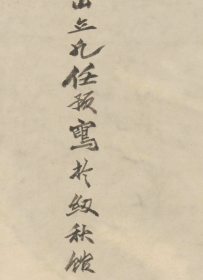 山立凡任預寫於紉秋館